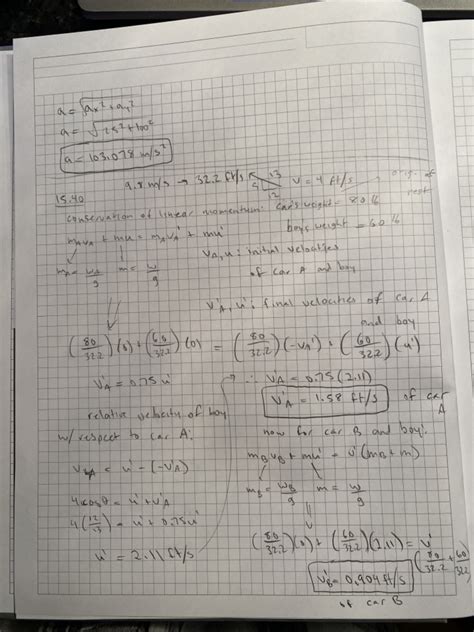 a = √ax² + ay²
a = √25² + 100²
a = 103.078 m/s²
9.8 m/s → 32.2 ft/s 5 13 12 v = 4 ft/s → orig. at rest
15.40
conservation of linear momentum: car's weight = 80 lb
mAvA + mu = mAv'A + mu' boys weight = 60 lb
mA = wA/g m = w/g vA, u: initial velocities of car A and boy
v'A, u': final velocities of car A and boy
(80/32.2)(0) + (60/32.2)(0) = (80/32.2)(-vA') + (60/32.2)(u')
v'A = 0.75 u' → ∴ v'A = 0.75(2.11)
v'A = 1.58 ft/s of car A
relative velocity of boy
w/ respect to car A:
= u' - (-v'A)
4cosθ = u' + v'A
4(12/13) = u' + 0.75u'
u' = 2.11 ft/s
now for car B and boy:
mBvB + mu' = v'(mB + m)
mB = wB/g m = w/g
(80/32.2)(0) + (60/32.2)(2.11) = v'(80/32.2 + 60/32.2)
v'B = 0.904 ft/s
of car B